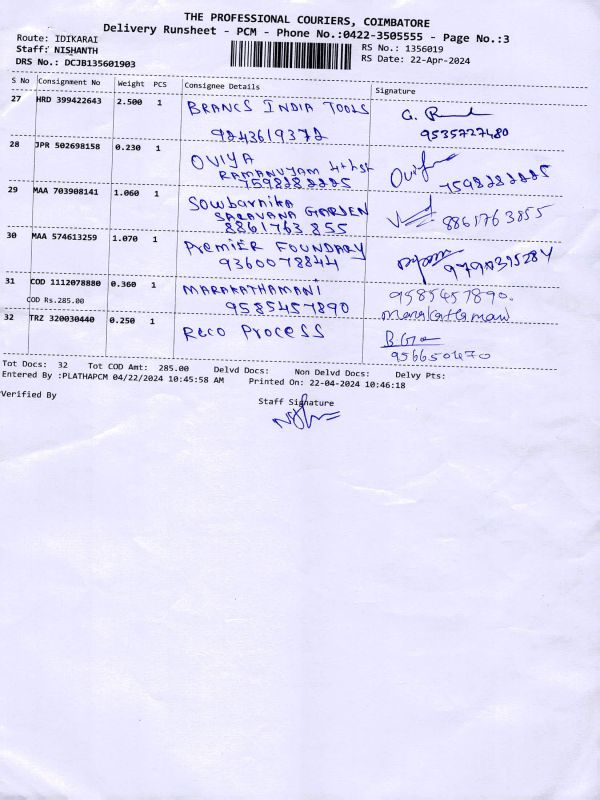 THE PROFESSIONAL COURIERS, COIMBATORE
Delivery Runsheet - PCM - Phone No.:0422-3505555 - Page No.:3
Route: IDIKARAI
RS No.: 1356019
Staff: NISHANTH
RS Date: 22-Apr-2024
DRS No.: DCJB135601903
S No Consignment No Weight PCS Consignee Details Signature
27 HRD 399422643 2.500 1 BRANCS INDIA TOOLS
9843619372 9535727480
28 JPR 502698158 0.230 1 OVIYA
RAMANUYAM 4th st
7598282225 7598282225
29 MAA 703908141 1.060 1 Sowbarnika
SARAVANA GARDEN
8861763855 8861763855
30 MAA 574613259 1.070 1 PREMIER FOUNDARY
9360078844
31 COD 1112078880 0.360 1 MARAKATHAMANI 9585457890.
COD Rs.285.00 9585457890 Marakathamani
32 TRZ 320030440 0.250 1 Reco Process
Tot Docs: 32 Tot COD Amt: 285.00 Delvd Docs: Non Delvd Docs: Delvy Pts:
Entered By :PLATHAPCM 04/22/2024 10:45:58 AM Printed On: 22-04-2024 10:46:18
Verified By
Staff Signature